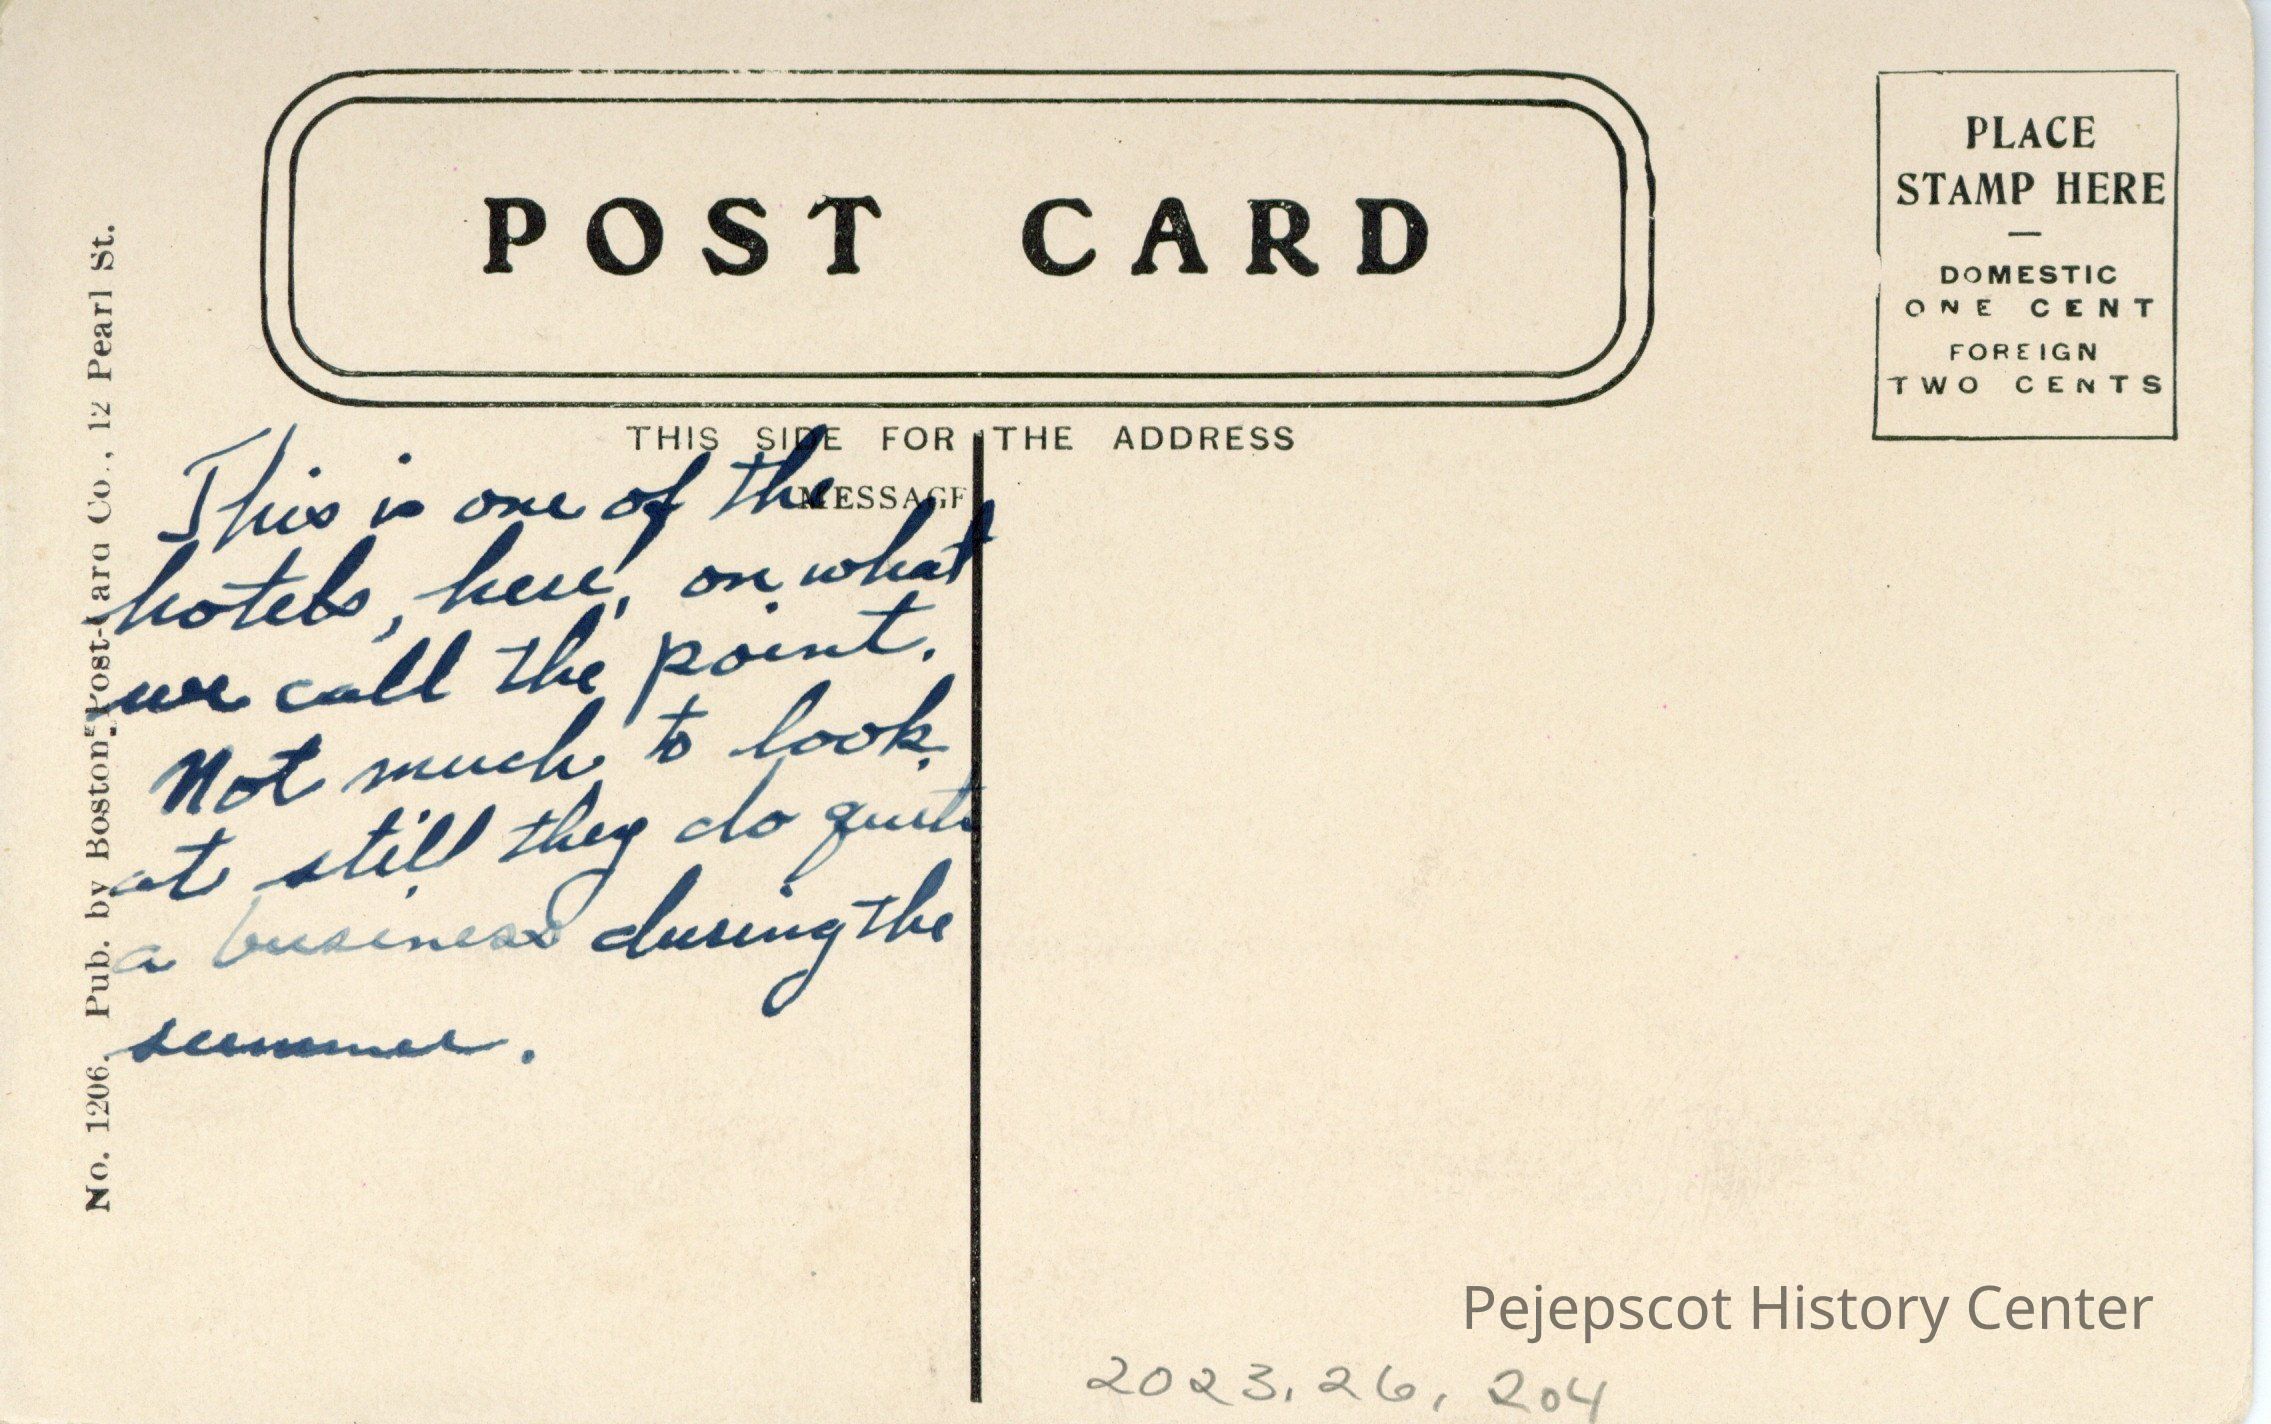 POST CARD
PLACE
STAMP HERE
DOMESTIC
ONE CENT
FOREIGN
TWO CENTS
THIS SIDE FOR THE ADDRESS
MESSAGE
This is one of the
hotels, here, on what
we call the point.
Not much to look
at still they do quite
a business during the
summer.
No. 1206. Pub. by Boston Post-Card Co., 12 Pearl St.
Pejepscot History Center
2023.26.204